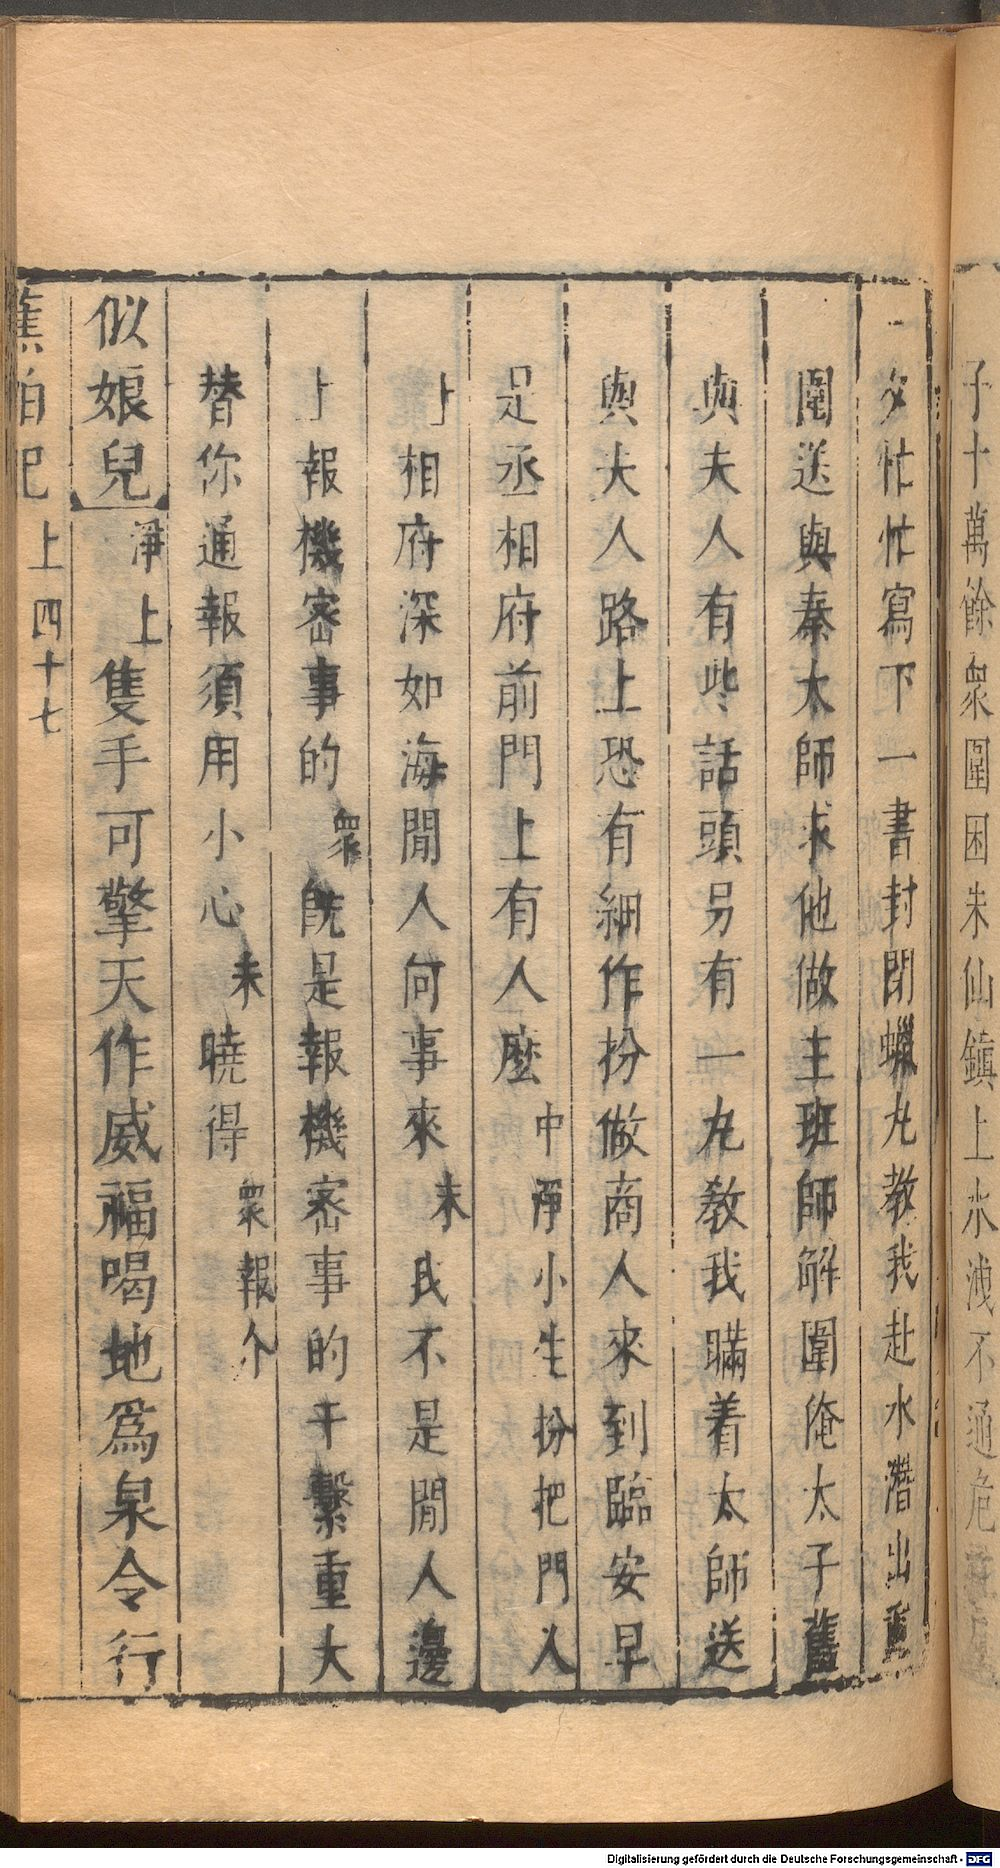 子十萬餘衆圍困朱仙鎮上水洩不通危
夕忙忙寫下一書封閉蠟丸教我赴水潛出重
圍送與秦太師求他做主班師解圍俺太子舊
與夫人有些話頭另有一丸教我瞞着太師送
與夫人路上恐有細作扮做商人來到臨安早
是丞相府前門上有人麼中淨小生扮把門人
上相府深如海閒人何事來末我不是閒人邊
上報機密事的衆旣是報機密事的干繫重大
替你通報須用小心末曉得衆報介
似娘兒淨上隻手可擎天作威福喝地爲泉令行
蕉帕記 上四十七
Digitalisierung gefördert durch die Deutsche Forschungsgemeinschaft - DFG